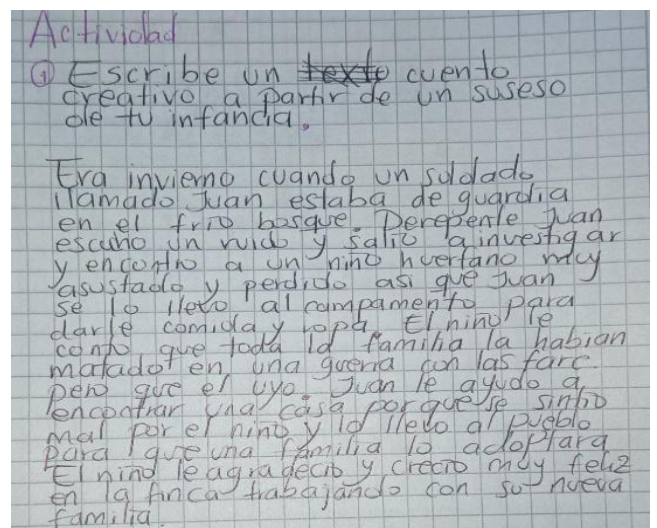 Actividad
① Escribe un texto cuento
creativo a partir de un suseso
de tu infancia.
Era invierno cuando un soldado
llamado Juan estaba de guardia
en el frio bosque. Derepente Juan
escuho un ruido y salio a investigar
y encontro a un niño huerfano muy
asustado y perdido asi que Juan
se lo llevo al campamento para
darle comida y ropa. El niño le
conto que toda la familia la habian
matado en una guerra con las farc.
pero que el uyo. Juan le ayudo a
encontrar una casa porque se sintio
mal por el niño y lo llevo al pueblo
para que una familia lo adoptara
El niño le agradecio y crecio muy feliz
en la finca trabajando con su nueva
familia.